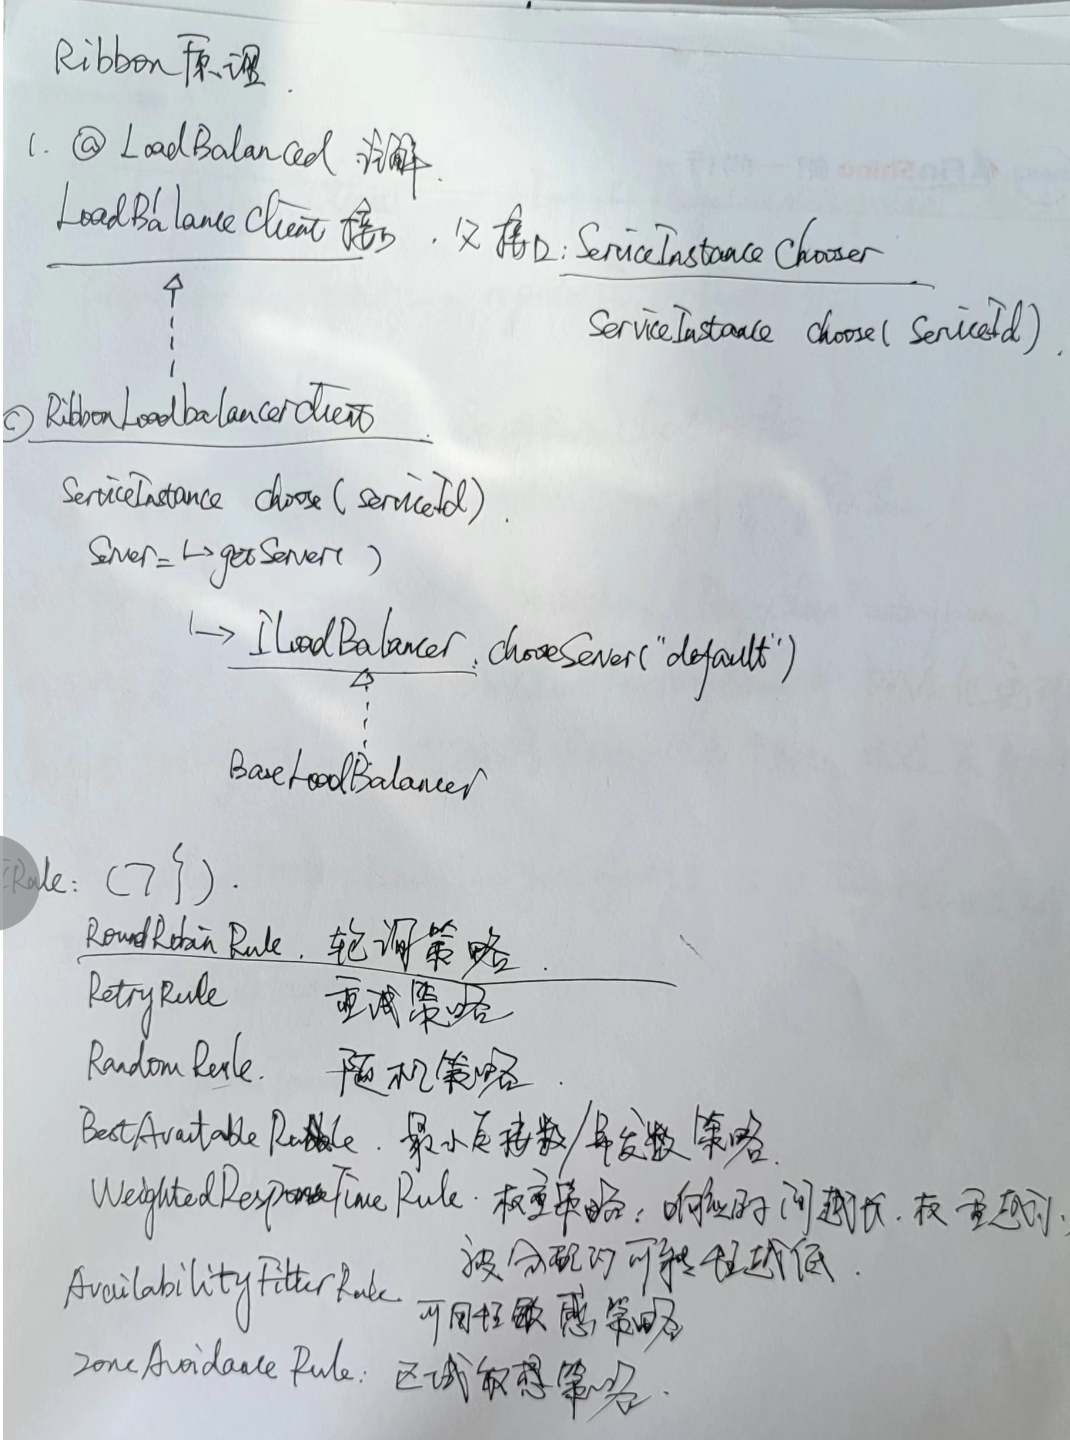 Ribbon原理.
1. @LoadBalanced 注解.
LoadBalanceClient 接口. 父接口: ServiceInstanceChooser
ServiceInstance choose(ServiceId).
C RibbonLoadbalancerClient
ServiceInstance choose(serviceId).
Server= ↳ getServer( )
↳ ILoadBalancer. chooseServer("default")
BaseLoadBalancer
IRule: (7种).
RoundRobin Rule. 轮询策略.
RetryRule 重试策略
Random Rule. 随机策略.
BestAvailable Rule. 最小连接数/并发数策略.
WeightedResponseTime Rule. 权重策略: 响应时间越长. 权重越小,
被分配的可能性越低.
AvailabilityFilterRule 可用性敏感策略
Zone Avoidance Rule: 区域敏感策略.